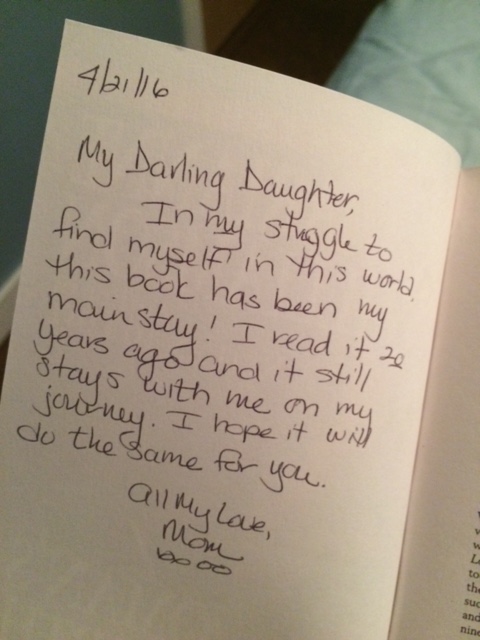 4/21/16
My Darling Daughter,
In my struggle to
find myself in this world,
this book has been my
mainstay! I read it 20
years ago and it still
stays with me on my
journey. I hope it will
do the same for you.
All My Love,
Mom